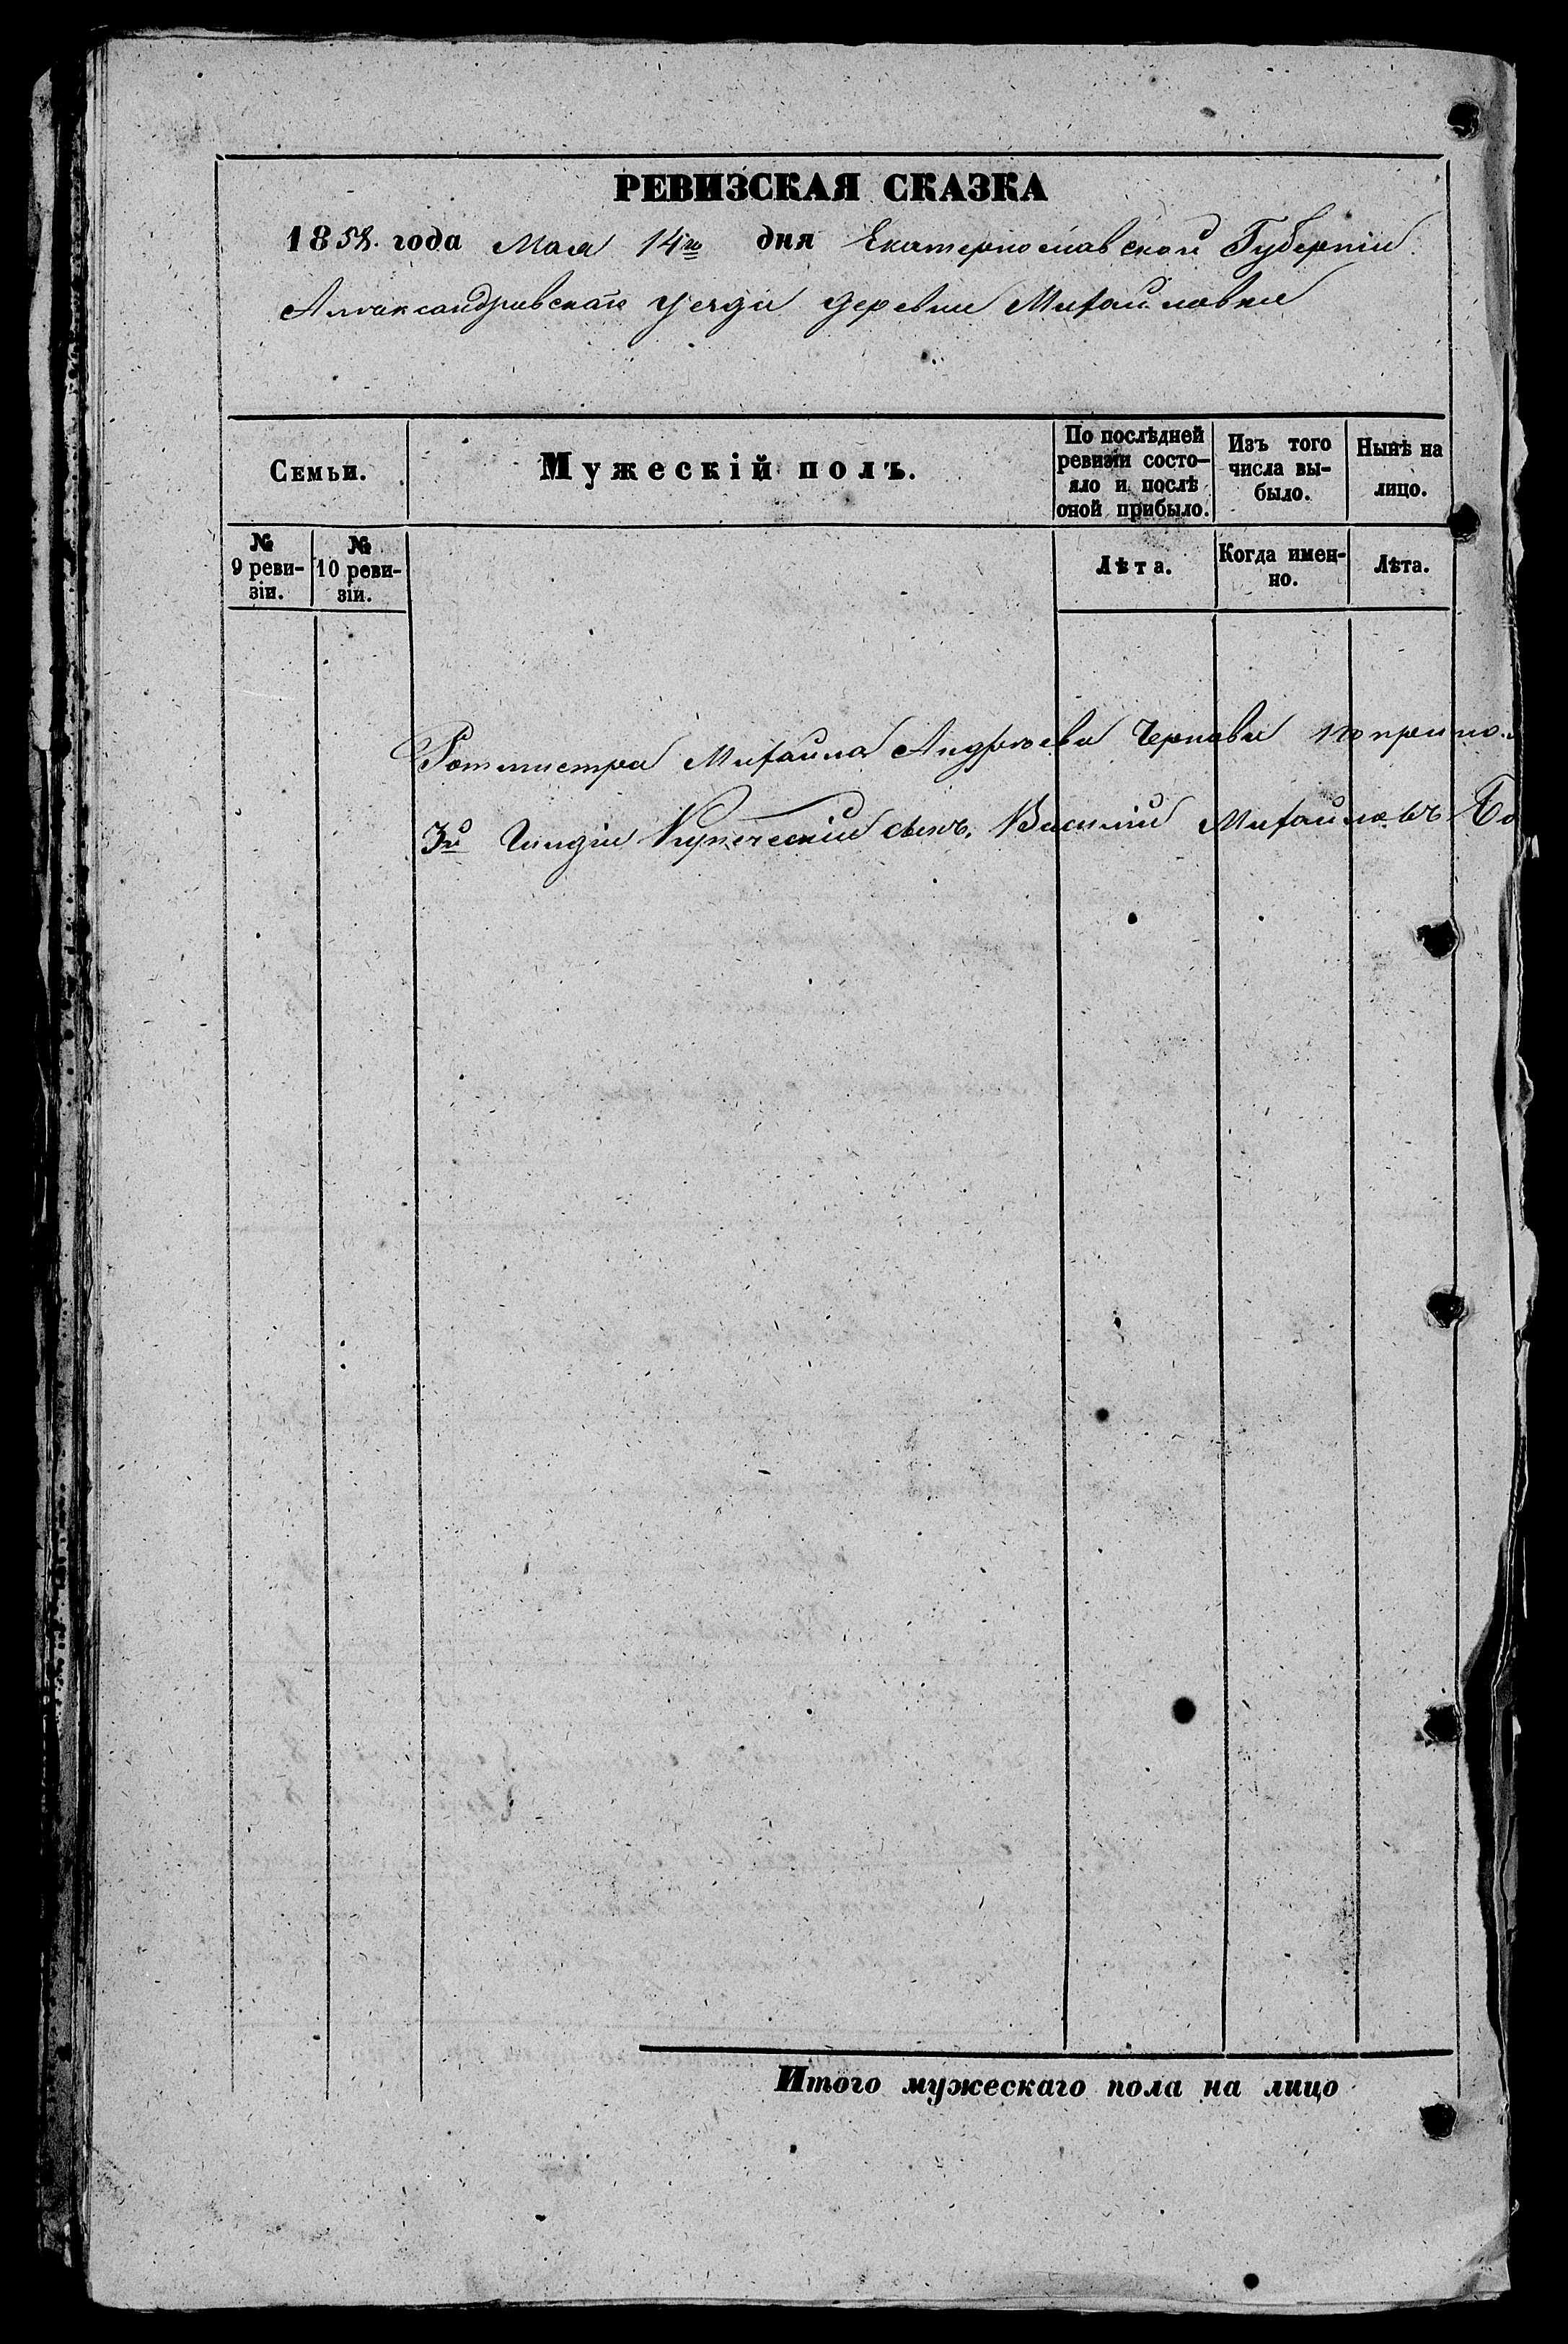 РЕВИЗСКАЯ СКАЗКА
1858. года Мая 14го дня Екатеринославской Губернiи
Александровскаго уезда деревни Михайловки
Семьи.
Мужескiй полъ.
По послѣдней ревизiи состо-яло и послѣ оной прибыло.
Изъ того числа вы-было.
Нынѣ на лицо.
№ 9 реви-зiи.
№ 10 реви-зiи.
Лѣта.
Когда имен-но.
Лѣта.
Ротмистра Михаила Андреева Чернова
3й Гильдiи Купеческiй сынъ, Василiй Михайловъ
Итого мужескаго пола на лицо